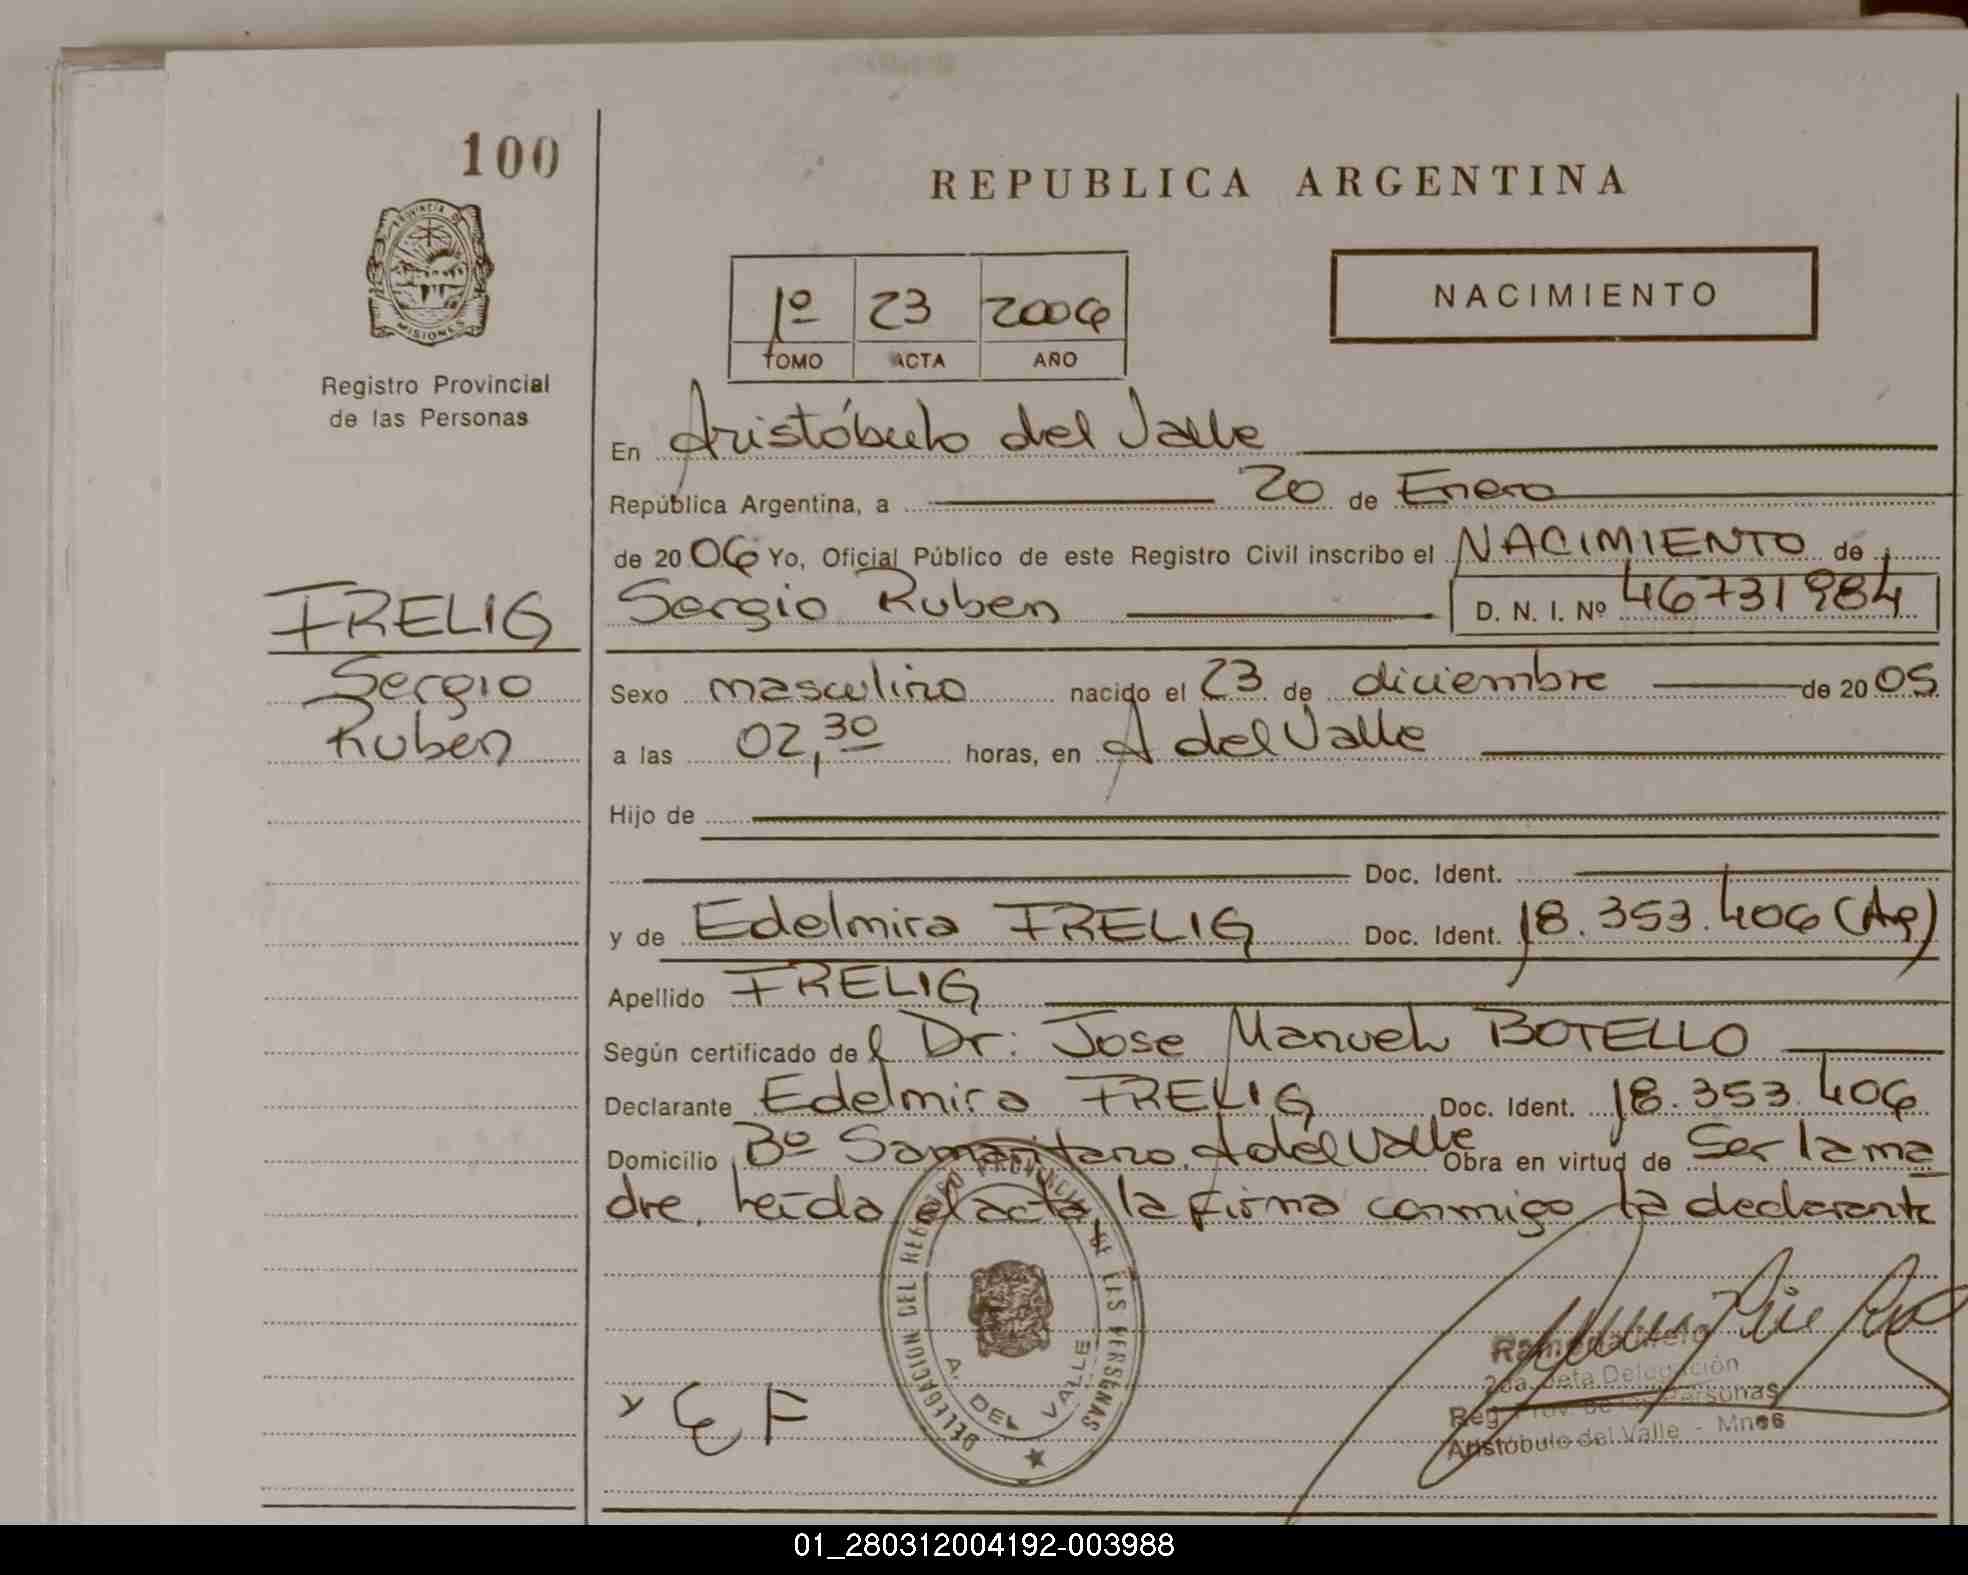 100
PROVINCIA DE
MISIONES
Registro Provincial
de las Personas
FRELIG
Sergio
Ruben
REPUBLICA ARGENTINA
1º 23 2006
TOMO ACTA AÑO
NACIMIENTO
En Aristóbulo del Valle
República Argentina, a 20 de Enero
de 2006 Yo, Oficial Público de este Registro Civil inscribo el NACIMIENTO de
Sergio Ruben D. N. I. Nº 46731984
Sexo masculino nacido el 23 de diciembre de 2005
a las 02,30 horas, en A del Valle
Hijo de
Doc. Ident.
y de Edelmira FRELIG Doc. Ident. 18.353.406 (Ag)
Apellido FRELIG
Según certificado del Dr: Jose Manuel BOTELLO
Declarante Edelmira FRELIG Doc. Ident. 18.353.406
Domicilio Bº Samaritano, A del Valle Obra en virtud de Ser la ma
dre. Leída el acta, la firma conmigo la declarante
DELEGACION DEL REGISTRO PROVINCIAL DE LAS PERSONAS
A. DEL VALLE
E F
2da. Jefa Delegación
Reg. Prov. de las Personas
Aristóbulo del Valle - Mnes
01_280312004192-003988